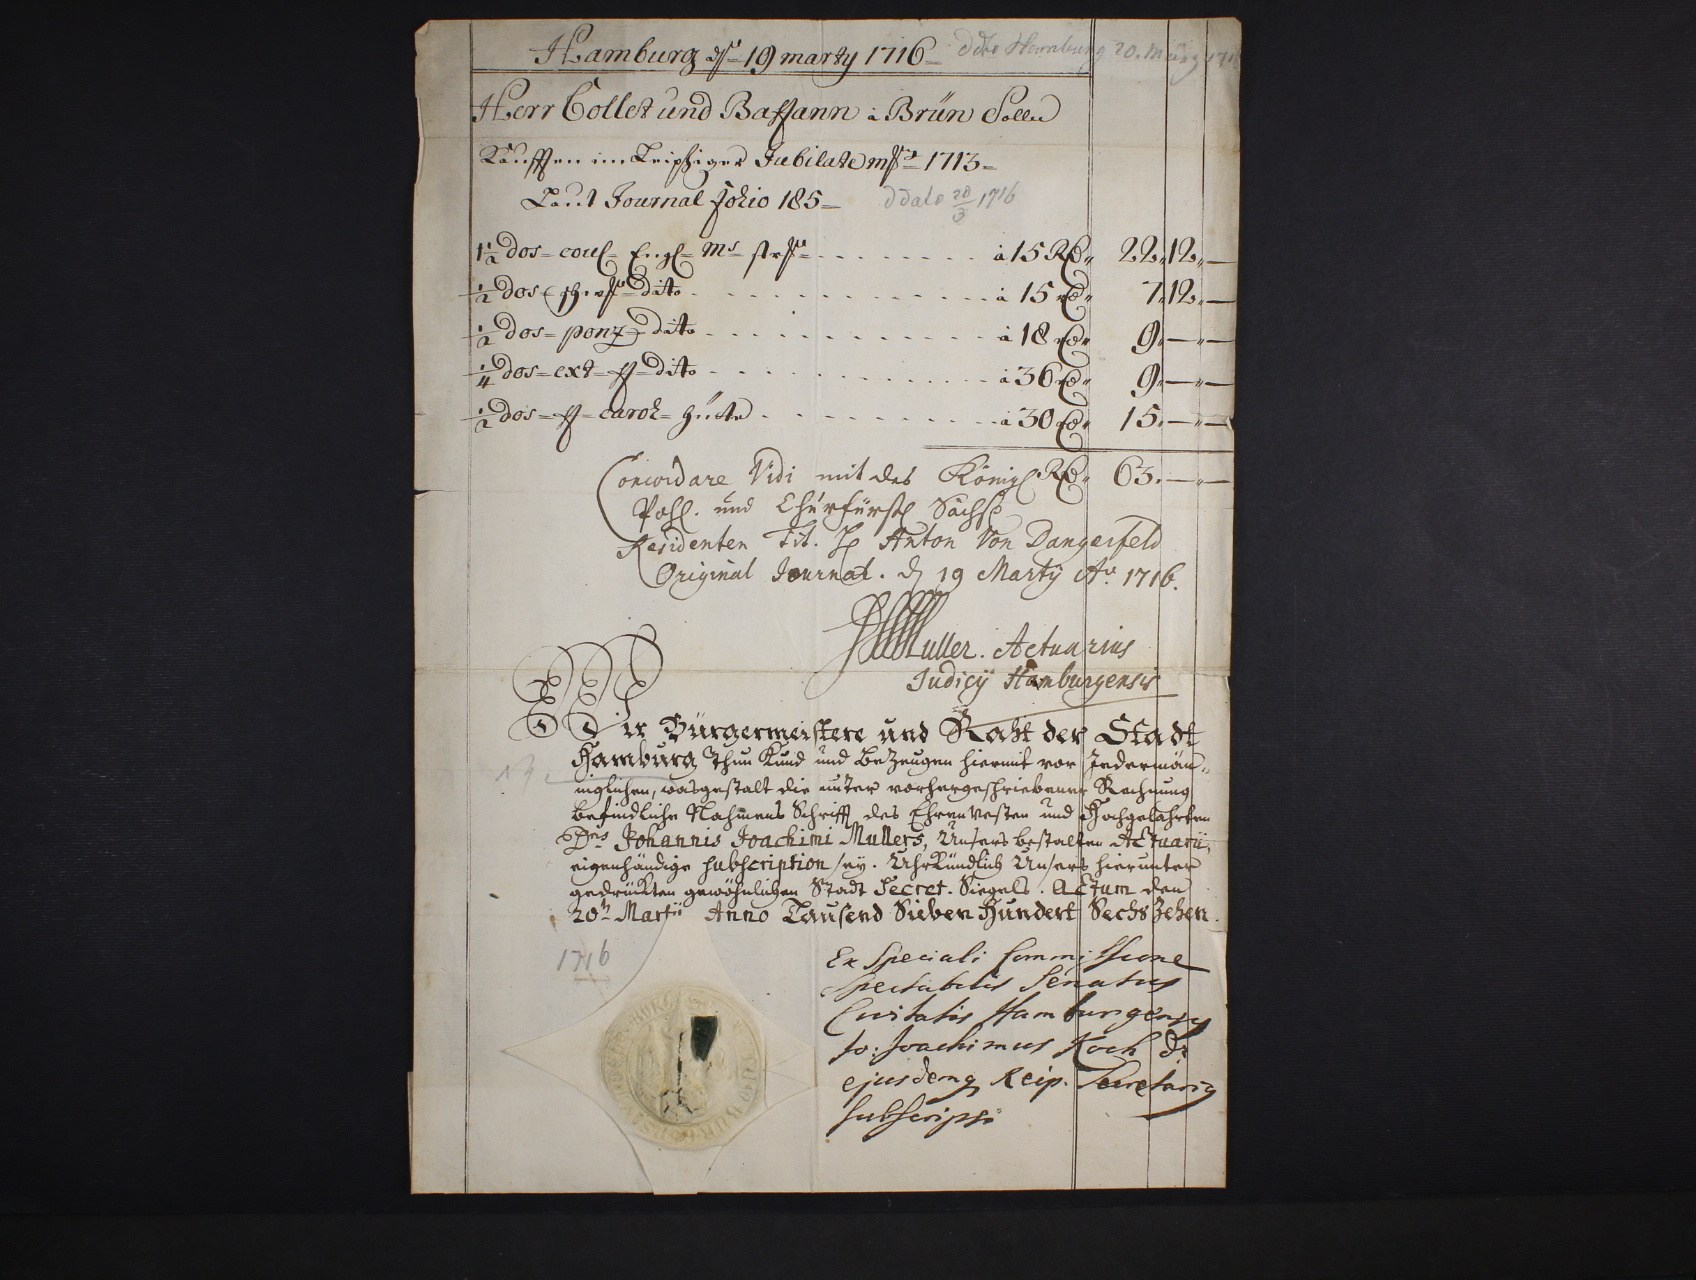 Hamburg ds 19 marty 1716 ddto Hamburg 20. Märtz 1716
Herr Collet und Bassann à Brün Sollen
Kauffen im Leipziger Jubilate mß 1713
Laut Journal folio 185 ddato 20/3 1716
1½ dos= coul= Engl= Ms à 15 Rℓ 22,,12,,—
½ dos dito à 15 Rℓ 7,,12,,—
½ dos= ponz= dito à 18 Rℓ 9,,—,,—
¼ dos= ext= ff= dito à 36 Rℓ 9,,—,,—
½ dos= ff= carol= hüte à 30 Rℓ 15,,—,,—
Rℓ 63,,—,,—
Concordare Vidi mit des Königl
Pohl. und Churfürstl Sächsl
Residenten Tit. H Anton Von Dangerfeld
Original Journal. d 19 Martij Ao 1716.
Muller. Actuarius
Judicij Hamburgensis
Wir Bürgermeistere und Raht der Stadt
Hamburg Thun Kund und Bezeugen hiermit vor Jedermän-
niglichen, wasgestalt die unter vorhergeschriebener Rechnung
befindliche Nahmens Schrifft des Ehrenvesten und Hochgelahrten
Dni Johannis Joachimi Mullers, Unsers bestalten Actuarij,
eigenhändige subscription sey. Uhrkündlich Unsers hierunter
gedrückten gewöhnlichen Stadt Secret. Siegels. Actum den
20ten Martii Anno Tausend Sieben Hundert Sechszehen.
1716
Ex Speciali Commissione
Spectabilis Senatus
Civitatis Hamburgensis
Jo: Joachimus Koch Dr
ejusdemq Reip. Secretarius
subscripsi